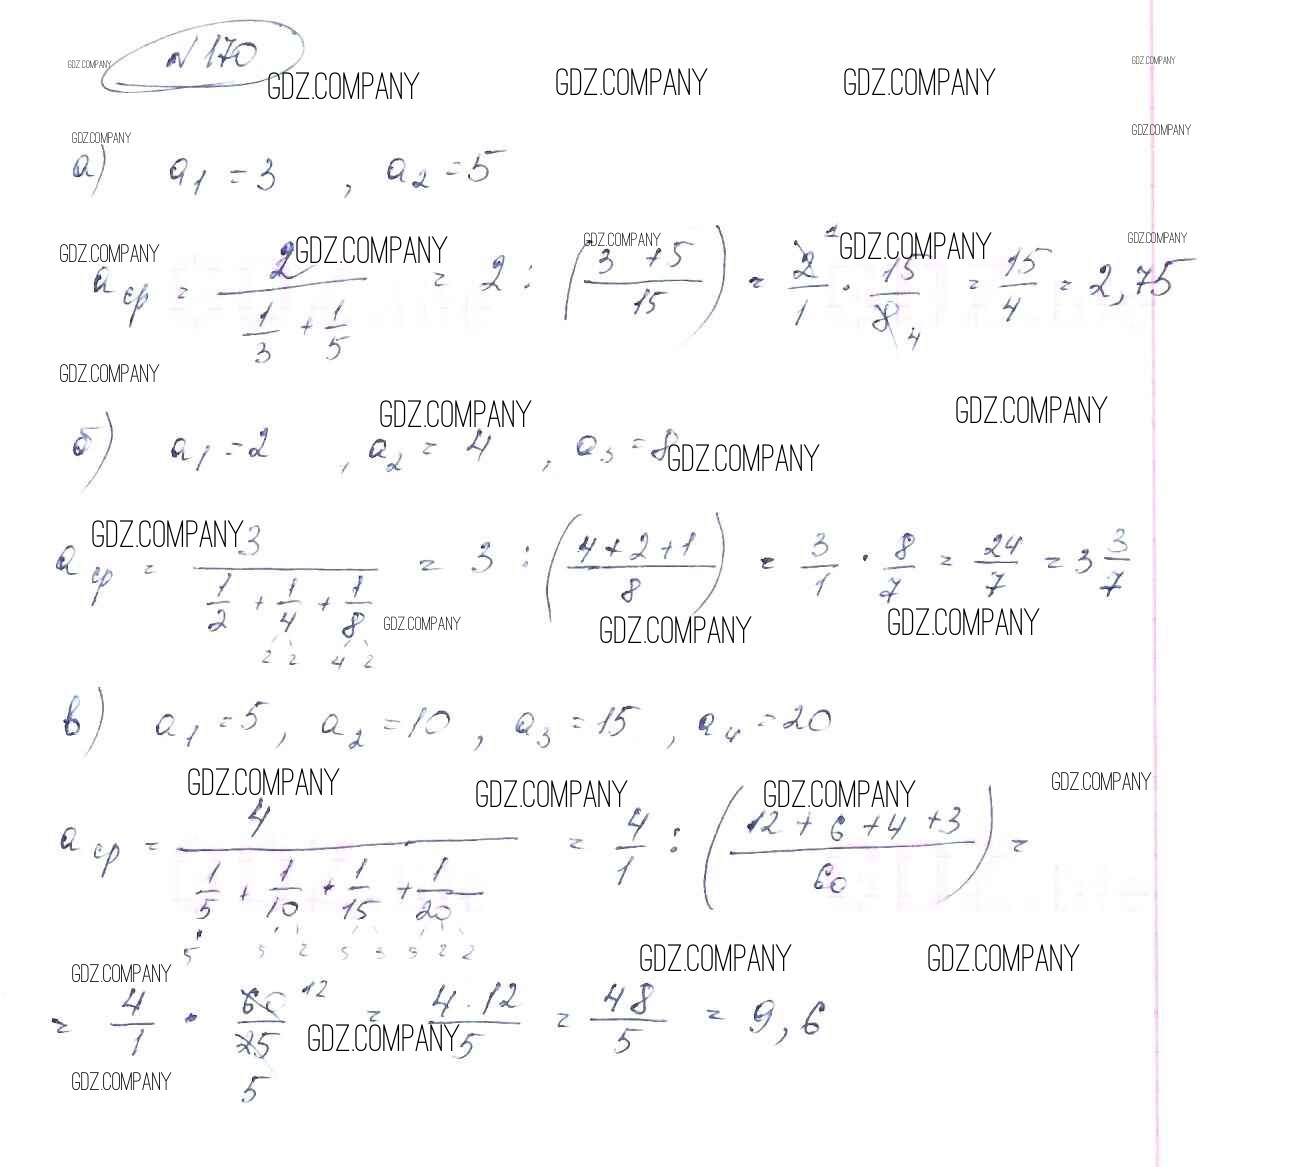 N 170
GDZ.COMPANY GDZ.COMPANY GDZ.COMPANY GDZ.COMPANY GDZ.COMPANY
GDZ.COMPANY GDZ.COMPANY
а) a₁ = 3 , a₂ = 5
GDZ.COMPANY GDZ.COMPANY GDZ.COMPANY GDZ.COMPANY GDZ.COMPANY
a ср = 2/(1/3 + 1/5) = 2 : ((3 + 5)/15) = 2/1 · 15/8 = 15/4 = 2,75
1 4
GDZ.COMPANY
GDZ.COMPANY GDZ.COMPANY
б) a₁ = 2 , a₂ = 4 , a₃ = 8
GDZ.COMPANY
GDZ.COMPANY
a ср = 3/(1/2 + 1/4 + 1/8) = 3 : ((4 + 2 + 1)/8) = 3/1 · 8/7 = 24/7 = 3 3/7
GDZ.COMPANY GDZ.COMPANY GDZ.COMPANY
2 2 4 2
в) a₁ = 5 , a₂ = 10 , a₃ = 15 , a₄ = 20
GDZ.COMPANY GDZ.COMPANY GDZ.COMPANY GDZ.COMPANY
a ср = 4/(1/5 + 1/10 + 1/15 + 1/20) = 4/1 : ((12 + 6 + 4 + 3)/60) =
5 5 2 5 3 5 2 2
GDZ.COMPANY GDZ.COMPANY GDZ.COMPANY
= 4/1 · 60/25 = 4 · 12/5 = 48/5 = 9,6
12 5
GDZ.COMPANY
GDZ.COMPANY